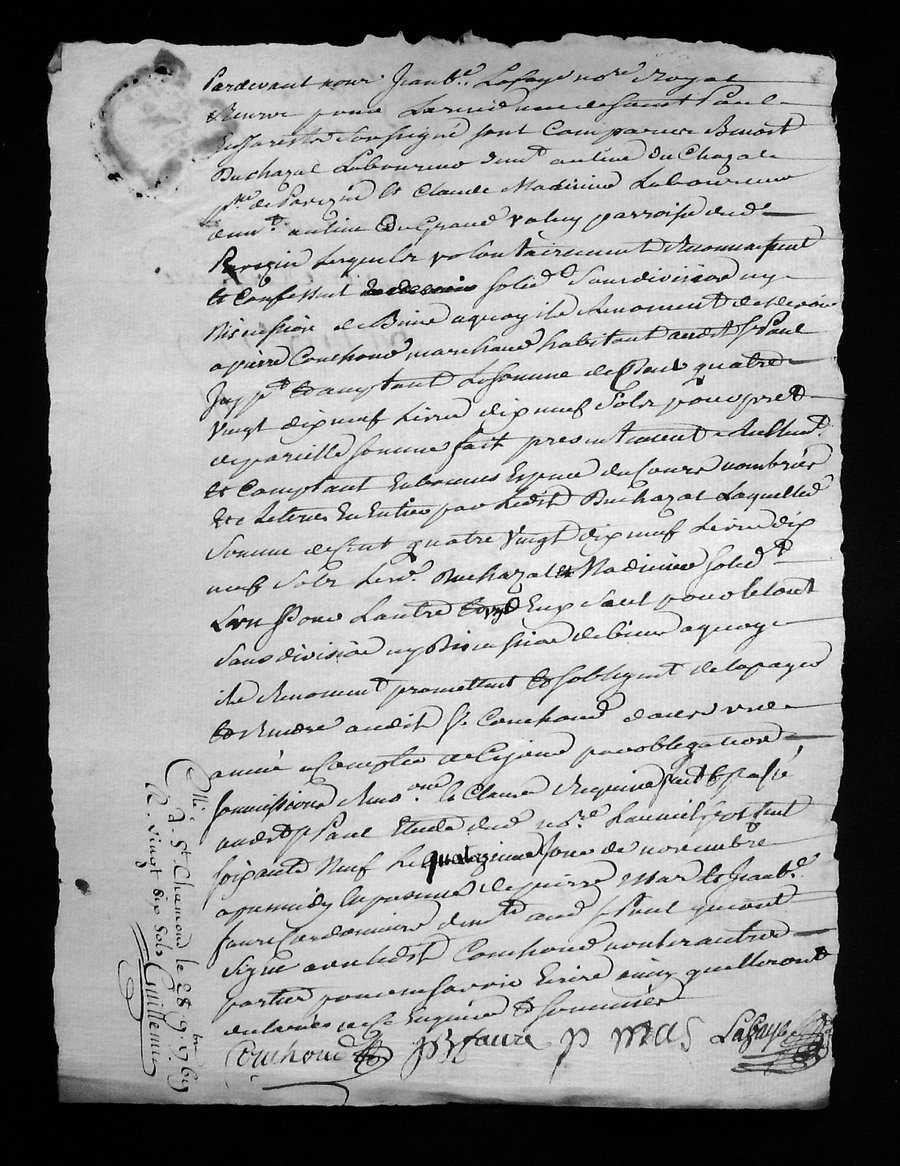 Pardevant nous Jean bte Lafaye nore Royal
Reservé pour la residence de Saint Paul
en Jarest Soussigné sont Comparus Benoit
Duchazal Laboureur demt au lieu du Chazal
psse de Pavezin Et Claude Madinier Laboureur
demt au lieu du Grand Valuy parroise dud
Pavezin Lesquels volontairement Reconnaissent
Et Confessent solidt Sans division ny
Discussion de Biens a quoy ils Renoncent devoir
a pierre Couchoud marchand habitant audit St Paul
Icy pnt Et acceptant La Somme de Cent quatre
vingt dix neuf Livres dix neuf Sols pour pret
de pareille somme fait presentement Reellemt
Et Comptant En bonnes Especes du Cours nombrées
Et Retirées En Entier par Ledit Duchazal Laquelle
Somme de Cent quatre Vingt dix neuf Livres dix
neuf Sols Lesd Duchazal Et Madinier solidt
L'un pour L'autre Eux Seul pour le tout
Sans division ny Discussion de biens a quoy
ils Renoncent promettent Et s'obligent de la payer
Et Rendre audit Sr Couchoud dans une
année a Compter de Ce jour par obligation
soumissions Renons Et Clauses Requises fait Et passé
audit St Paul Etude dud nore L'an mil sept cent
soixante Neuf Le quatorzieme jour de novembre
apres midy En presence de pierre Mas Et Jean bte
faure Cordonniers demts aud St Paul qui ont
Signé avec ledit Couchoud non les autres
parties pour ne savoir Ecrire ainsy qu'elles ont
declarées de Ce Enquises Et Sommées
Couchoud JB faure p mas Lafaye
Cllé
a St Chamond le 28 9bre 1769
R. vingt six sols
Guillemin